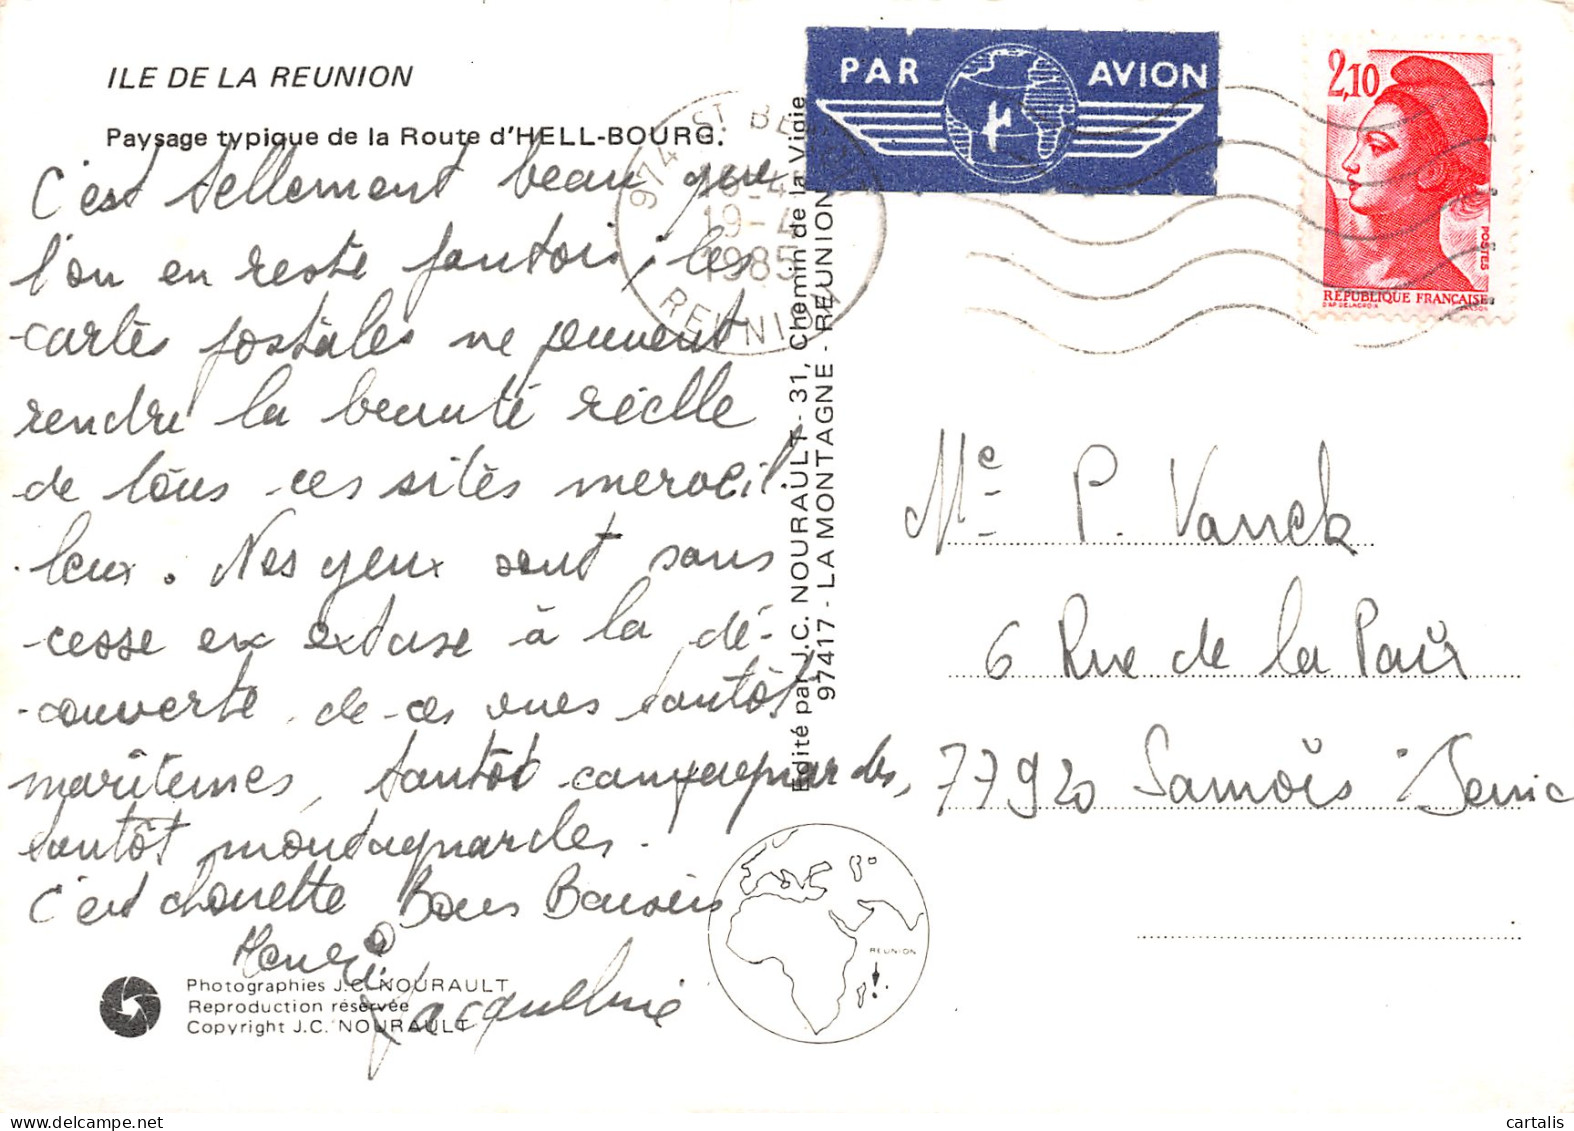 ILE DE LA REUNION
Paysage typique de la Route d'HELL-BOURG.
C'est tellement beau que
l'on en reste pantois ; les
cartes postales ne peuvent
rendre la beauté réelle
de tous ces sites merveil-
leux. Nos yeux sont sans
cesse en extase à la dé-
couverte de ces vues tantôt
maritimes, tantôt campagnardes,
tantôt montagnardes.
C'est chouette Bons Baisers
Henri
Jacqueline
Photographies J.C. NOURAULT
Reproduction réservée
Copyright J.C. NOURAULT
Edité par J.C. NOURAULT - 31, Chemin de la Vigie
97417 - LA MONTAGNE - REUNION
REUNION
PAR AVION
974 ST BE
19-4
1985
REUNION
2,10
POSTES
REPUBLIQUE FRANÇAISE
D'AP. DELACROIX
Me P. Vanek
6 Rue de la Paix
77920 Samois s/Seine
cartalis